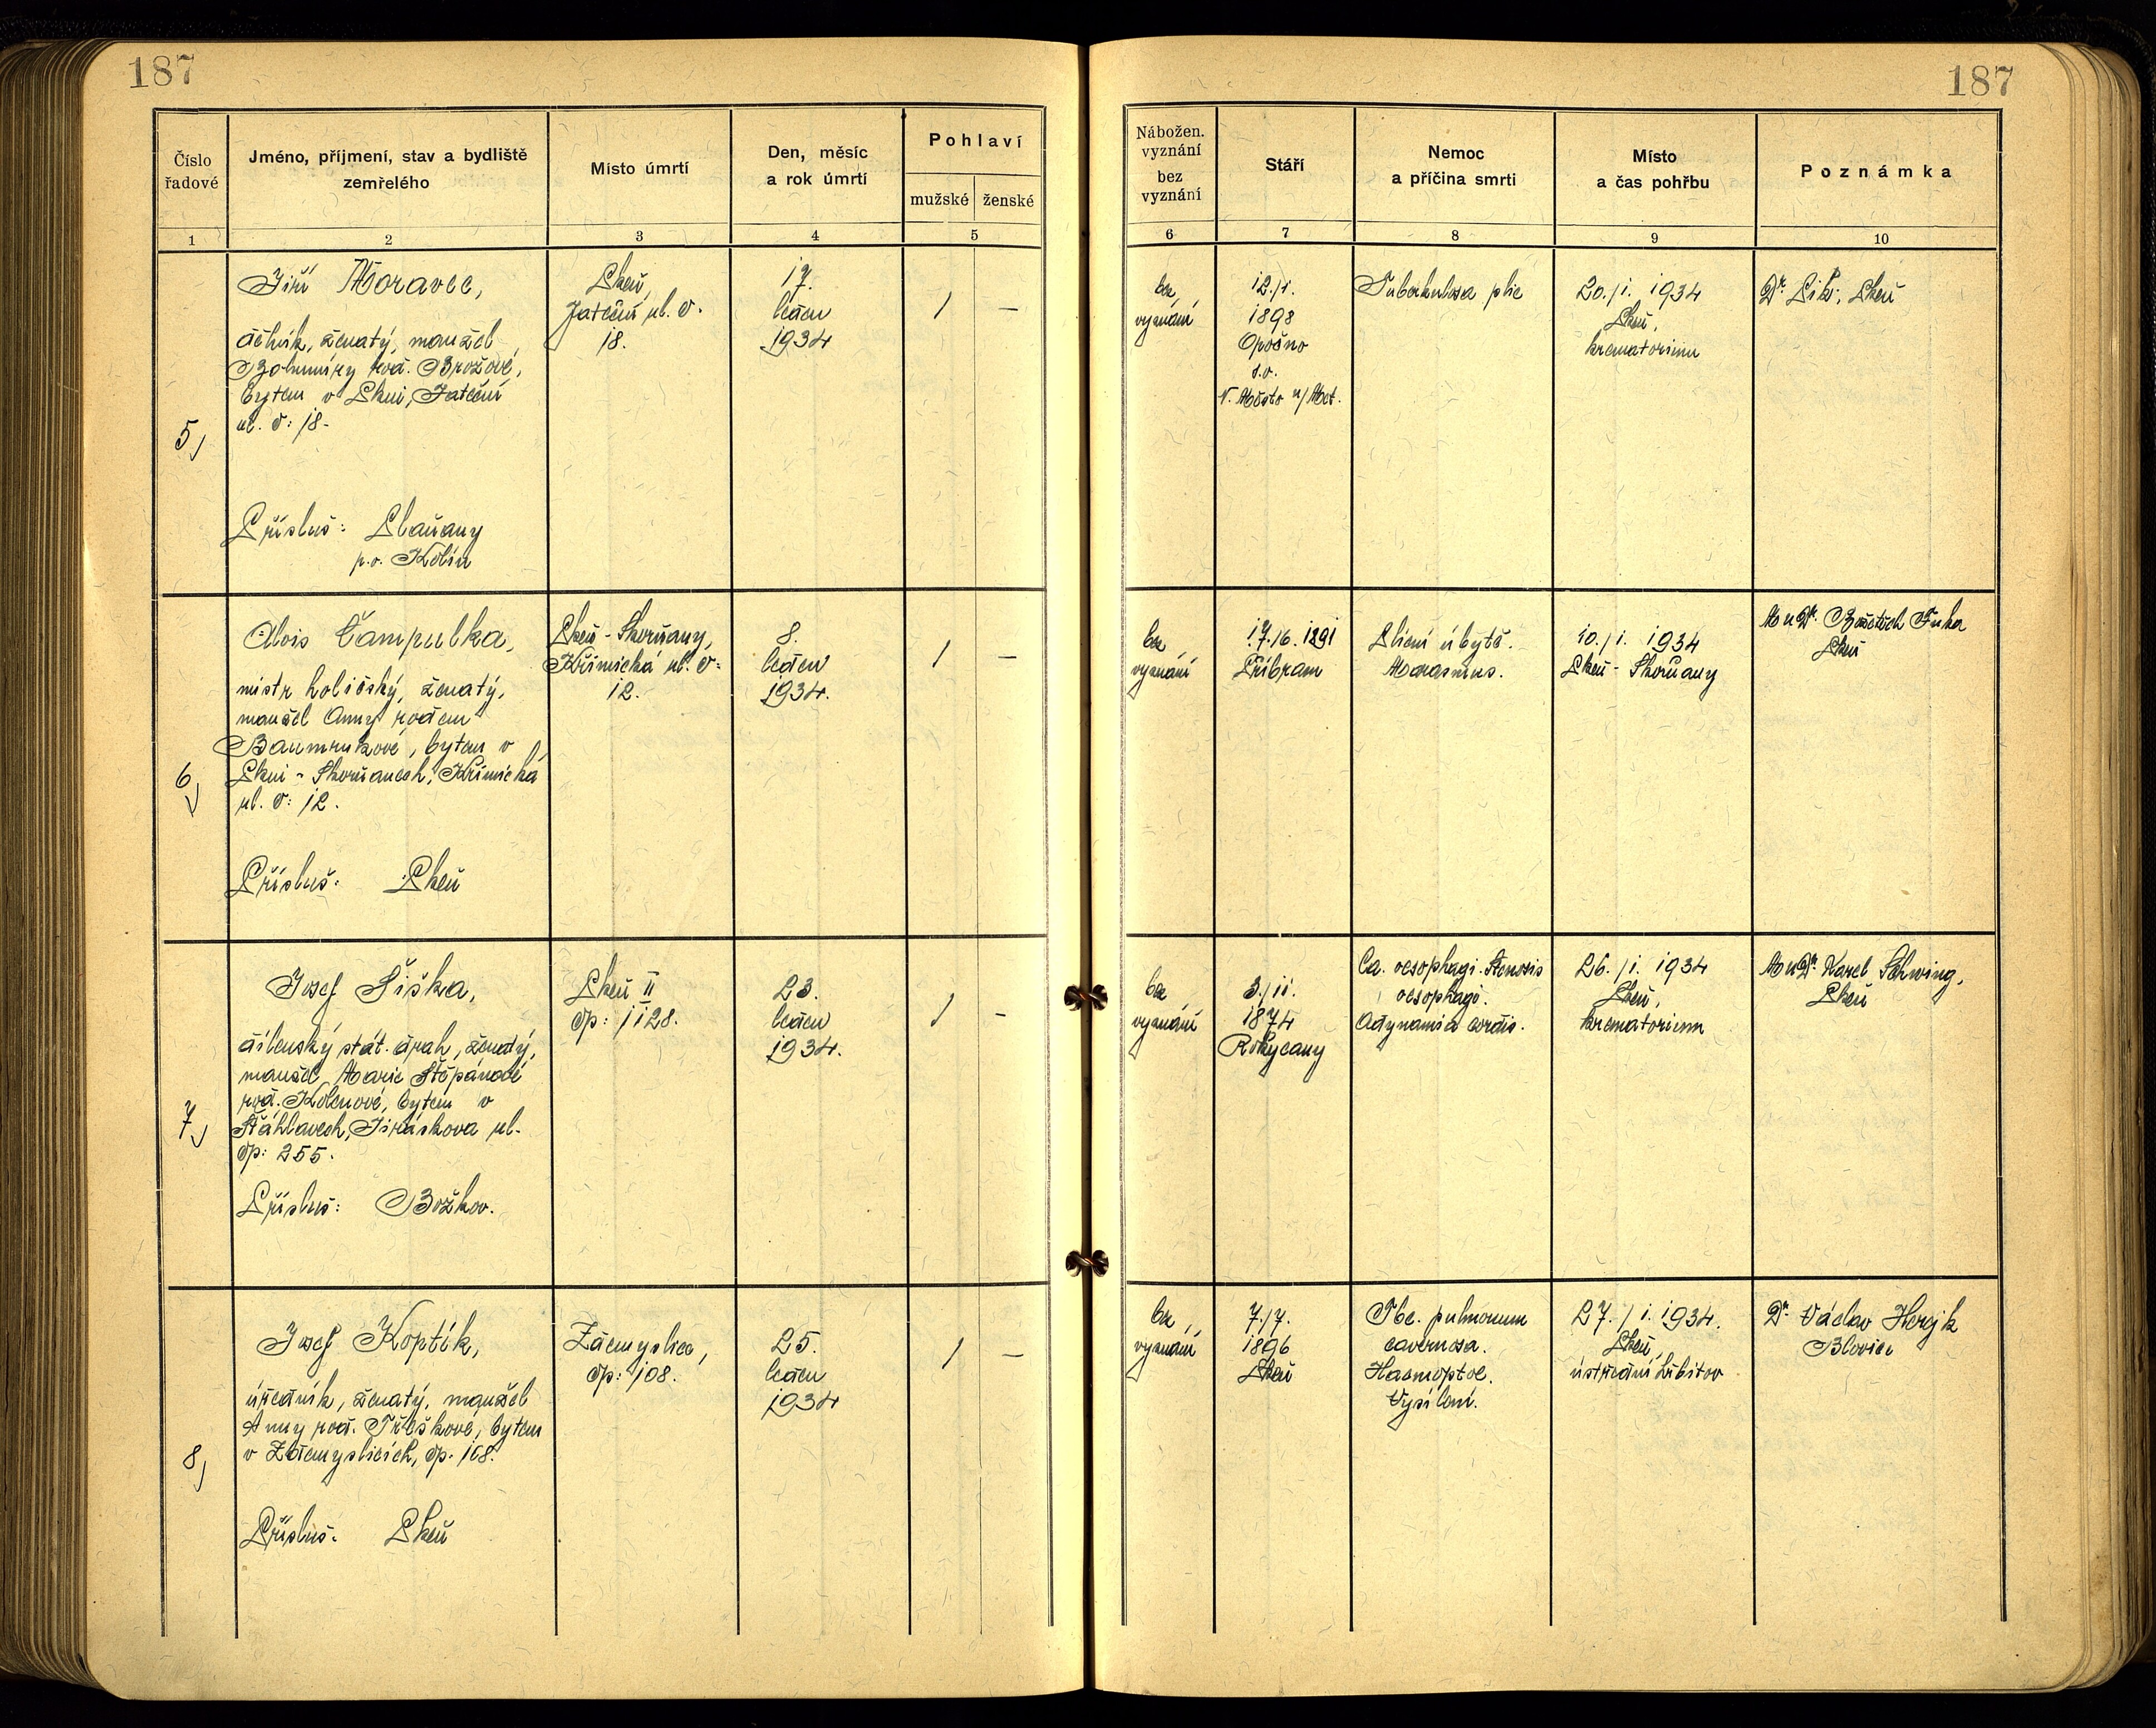 187
187
Číslo
řadové
Jméno, příjmení, stav a bydliště
zemřelého
Místo úmrtí
Den, měsíc
a rok úmrtí
Pohlaví
mužské
ženské
Nábožen.
vyznání
bez
vyznání
Stáří
Nemoc
a příčina smrti
Místo
a čas pohřbu
Poznámka
1
2
3
4
5
6
7
8
9
10
5)
Jiří Moravec,
dělník, ženatý, manžel
Bohumíry roz. Brožové,
bytem v Plzni, Jateční
ul. č: 18-
Přísluš: Plaňany
p.o. Kolín
Plzeň,
Jateční ul. č.
18.
17.
leden
1934
/
—
bez
vyznání
12./1.
1898
Opočno
s.o.
N. Město n/Met.
Tuberkulosa plic
20./1. 1934
Plzeň,
krematorium
Dr. Plzeň
6)
Alois Čampulka,
mistr holičský, ženatý,
manžel Anny rozen
Baumrukové, bytem v
Plzni - Skvrňanech, Křimická
ul. č: 12.
Přísluš: Plzeň
Plzeň - Skvrňany,
Křimická ul. č:
12.
8.
leden
1934.
/
—
bez
vyznání
17./6. 1891
Příbram
Plicní úbytě.
Marasmus.
10./1. 1934
Plzeň - Skvrňany
MuDr. Bořetěch Fuka
Plzeň
7)
Josef Šiška,
dílenský stát. drah, ženatý,
manžel Marie Štěpánové
roz. Kolenové, bytem v
Šťáhlavech, Jiráskova ul.
čp: 255.
Přísluš: Božkov.
Plzeň II
čp: 1128.
23.
leden
1934.
/
-
bez
vyznání
3./11.
1874
Rokycany
Ca. oesophagi. Stenosis
oesophagi.
Adynamia cordis.
26./1. 1934
Plzeň,
krematorium
MuDr. Karel Schwing,
Plzeň
8)
Josef Koptík,
úředník, ženatý, manžel
Anny roz. Třeškové, bytem
v Zdemyslicích, čp. 108.
Přísluš: Plzeň
Zdemyslice,
čp: 108.
25.
leden
1934
/
—
bez
vyznání
7./7.
1896
Plzeň
Tbc. pulmonum
cavernosa.
Haemoptoe.
Vysílení.
27./1. 1934.
Plzeň,
ústřední hřbitov
Dr. Václav Hrejk
Blovice